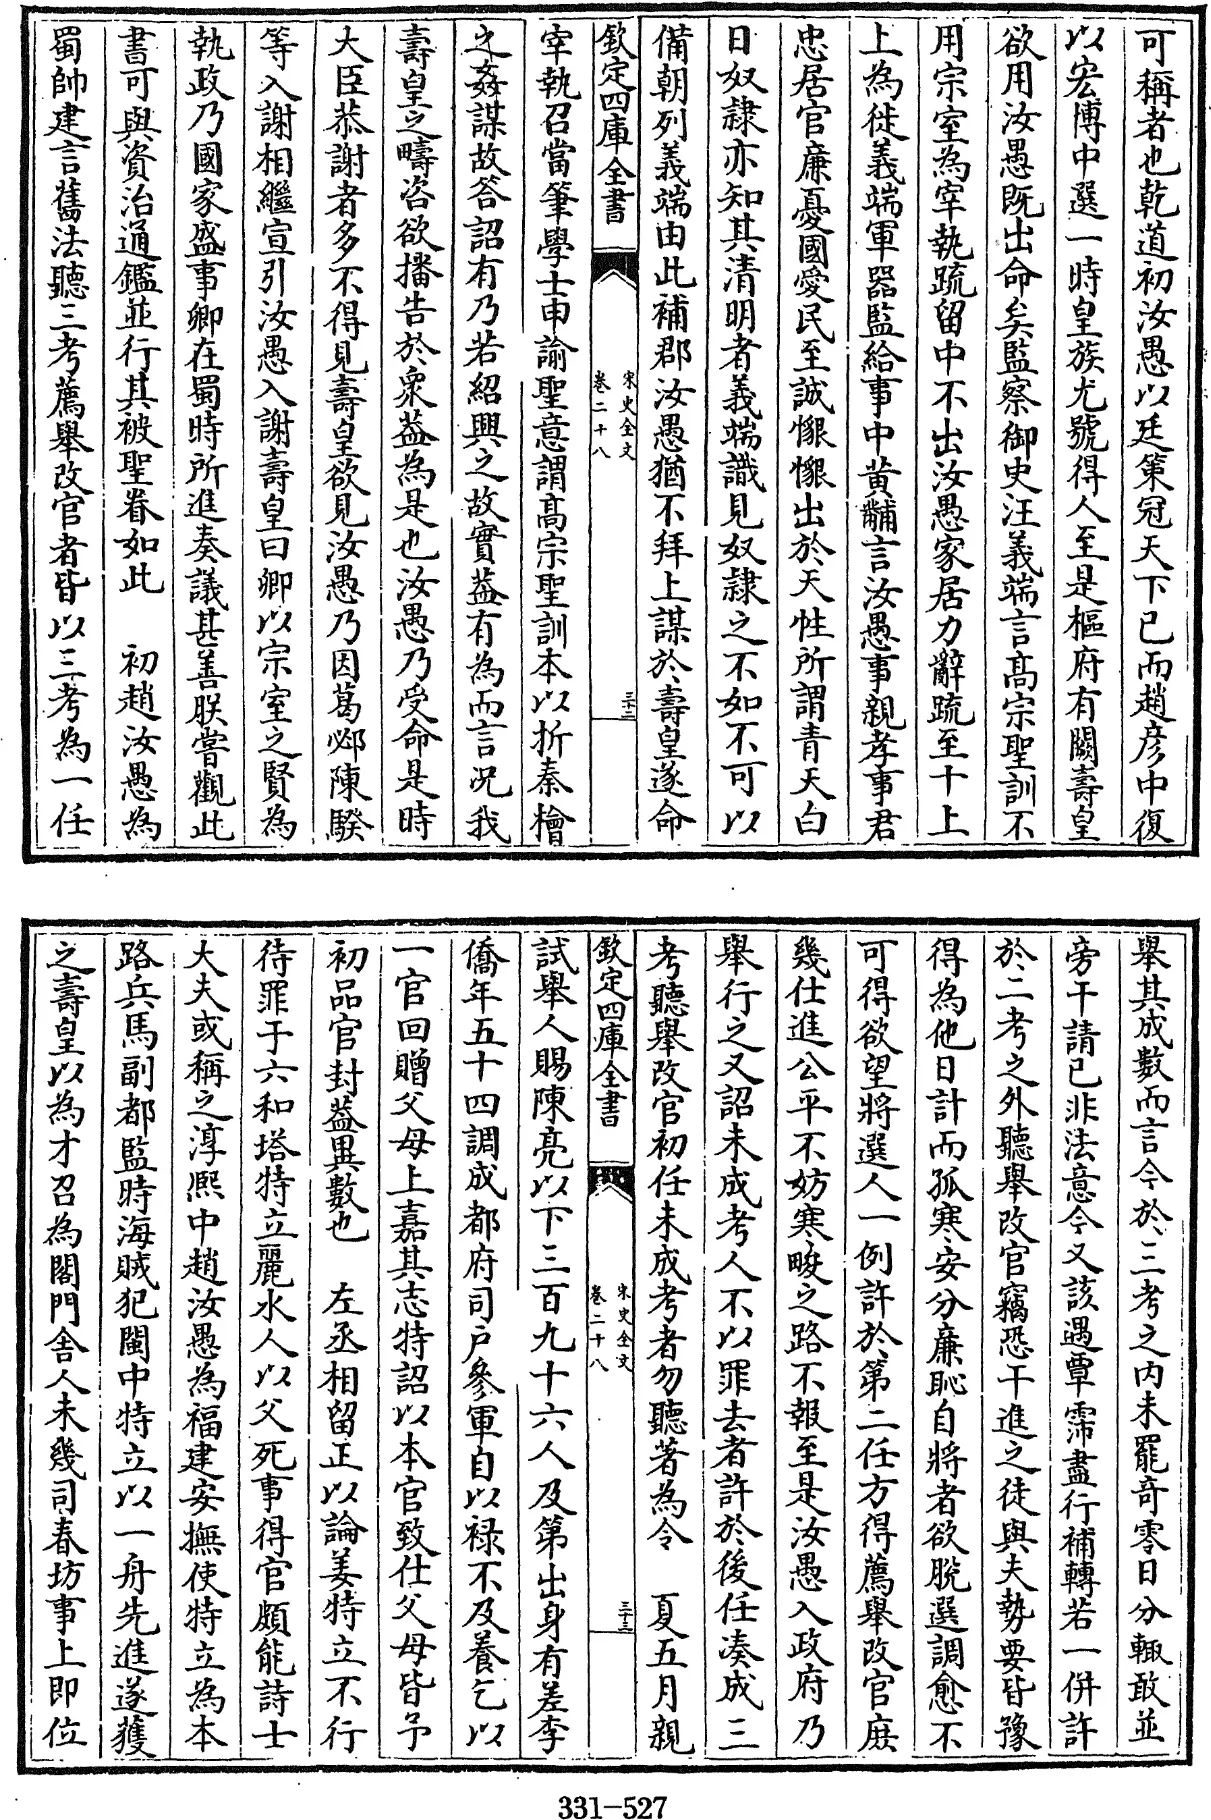 可稱者也乾道初汝愚以廷策冠天下已而趙彦中復
以宏博中選一時皇族尤號得人至是樞府有闕壽皇
欲用汝愚既出命矣監察御史汪義端言髙宗聖訓不
用宗室為宰執疏留中不出汝愚家居力辭疏至十上
上為徙義端軍器監給事中黄黼言汝愚事親孝事君
忠居官廉憂國愛民至誠懇懇出於天性所謂青天白
日奴隷亦知其清明者義端識見奴隷之不如不可以
備朝列義端由此補郡汝愚猶不拜上謀於壽皇遂命
欽定四庫全書
宋史全文
卷二十八
三十二
宰執召當筆學士申諭聖意謂髙宗聖訓本以折秦檜
之姦謀故答詔有乃若紹興之故實葢有為而言况我
壽皇之疇咨欲播告於衆葢為是也汝愚乃受命是時
大臣恭謝者多不得見壽皇欲見汝愚乃因葛邲陳騤
等入謝相繼宣引汝愚入謝壽皇曰卿以宗室之賢為
執政乃國家盛事卿在蜀時所進奏議甚善朕嘗觀此
書可與資治通鑑並行其被聖眷如此　初趙汝愚為
蜀帥建言舊法聽三考薦舉改官者皆以三考為一任
舉其成數而言今於三考之内未罷竒零日分輙敢並
旁干請已非法意今又該遇覃霈盡行補轉若一併許
於二考之外聽舉改官竊恐干進之徒與夫勢要皆豫
得為他日計而孤寒安分廉恥自將者欲脱選調愈不
可得欲望將選人一例許於第二任方得薦舉改官庶
幾仕進公平不妨寒畯之路不報至是汝愚入政府乃
舉行之又詔未成考人不以罪去者許於後任凑成三
考聽舉改官初任未成考者勿聽著為令　夏五月親
欽定四庫全書
宋史全文
卷二十八
三十三
試舉人賜陳亮以下三百九十六人及第出身有差李
僑年五十四調成都府司户參軍自以禄不及養乞以
一官回贈父母上嘉其志特詔以本官致仕父母皆予
初品官封葢異數也　左丞相留正以論姜特立不行
待罪于六和塔特立麗水人以父死事得官頗能詩士
大夫或稱之淳熙中趙汝愚為福建安撫使特立為本
路兵馬副都監時海賊犯閩中特立以一舟先進遂獲
之壽皇以為才召為閤門舍人未幾司春坊事上即位
331-527